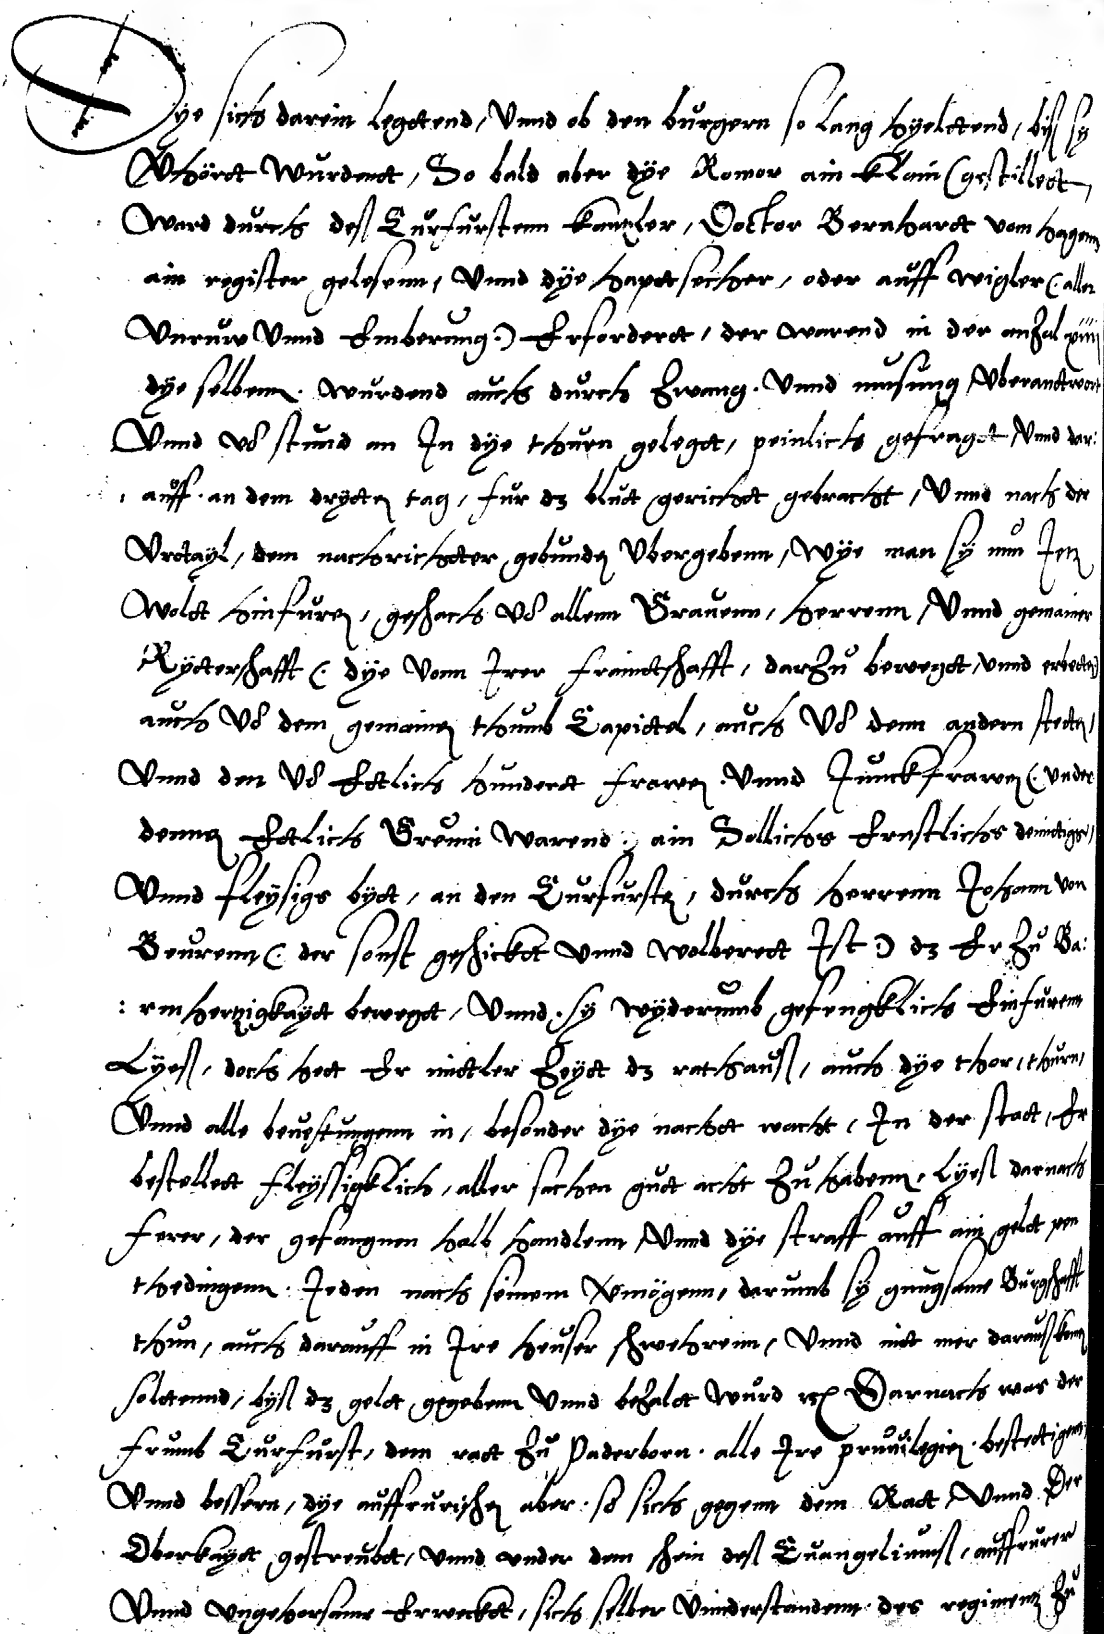 Dye sich darein legttend, Vnnd ob den bürgern so lang hyelttend, byß sy
Vhörtt wurdentt, So bald aber dye Romor ain klain gestillett,
Ward durch deß Curfurstenn kantzler, Docktor Bernhartt vom hagenn
ain register gelesenn, Vnnd dye haptsecher, oder auffwigler (: aller
Vnruw Vnnd Emberung :) Erfordertt, der warend in der anzal xviii
dye selbenn. wurdend auch durch zwang. Vnnd musung Vberanttwort
Vnnd von stund an In dye thurn gelegtt, peinlich gefragtt Vnnd dar:
: auff. an dem drytten tag, fur dz blutt gerichtt gebracht, Vnnd nach der
Vrttayl, dem nachrichtter gebunden Vbergebenn, Wye man sy nun Jetz
Woltt hinfuren, geschach von allenn Grauenn, herrenn, Vnnd gemainer
Rytterschafft (: dye Vonn Irer fraindtschafft, darzu bewegtt, vnnd erbetten
auch Von dem gemainen thumb Capittel, auch Von denn andern stetten,
Vnnd den Von Ettlich hundertt frawen. Vnnd Junckfrawen (: vnder
dennen Ettlich Greuin Warend :) ain Sollichs Ernstlichs demuttigs,
Vnnd fleysigs bytt, an den Curfursten, durch herrenn Johann von
Beurenn (: der sonst geschicktt Vnnd wolberett Ist :) dz Er zu Ba:
: rmhertzigkaytt bewegtt, Vnnd. sy wyderumb gefengklich Einfurenn
Lyeß, doch hett Er mittler Zeytt dz rathauß, auch dye thor, thurn,
Vnnd alle beuestungenn in, besonder dye nachtt wacht, In der statt, Er
bestellett fleyssigklich, aller sachen gutt acht zu habenn, Lyeß darnach
ferer, der gefangnen halb handlenn, Vnnd dye straff auff ain geltt pen
thedingenn. Jeden nach seinem Vermögenn, darumb sy gnugsame Burgschafft
thun, auch darauff in Ire heuser schwehrenn, Vnnd nitt mer darauß komen
solttennd, byß dz geltt gegebenn Vnnd bezaltt wurd etc Darnach was der
frumb Curfurst, dem ratt zu Paderborn. alle Ire priuilegien. bestettigenn
Vnnd bessern, dye auffrurischen aber. so sich gegenn dem Ratt, Vnnd Der
Oberkaytt gestreubtt, vnnd vnder dem schein deß Euangeliumß, auffrurer
Vnnd vngehorsame Erwecktt, sich selber Vnnderstandenn des regimentz zu